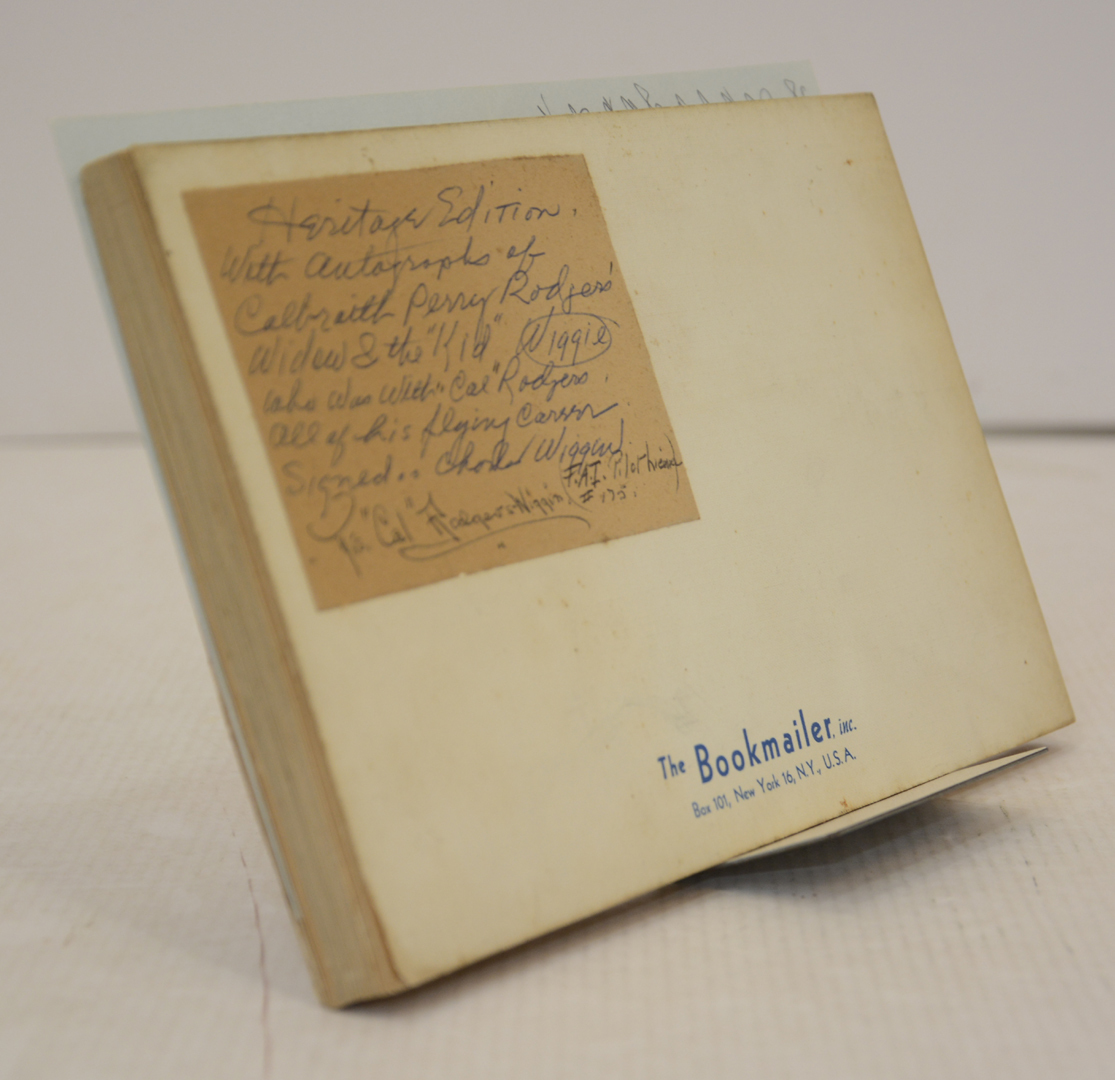 Heritage Edition.
With Autographs of
Calbraith Perry Rodgers'
Widow & the "Kid" Wiggie
who was with "Cal" Rodgers
all of his flying Career
Signed.. Charles Wiggin
F.A.I. Pilot license
# 175.
"Cal" Rodgers-Wiggin
The Bookmailer, inc.
Box 101, New York 16, N.Y., U.S.A.